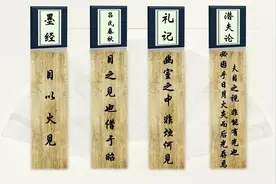 墨经
目以火见
吕氏春秋
目之见也借于昭
礼记
幽室之中 非烛何见
潜夫论
夫目之视 非能有光也
必因乎日月火炎而后光存焉